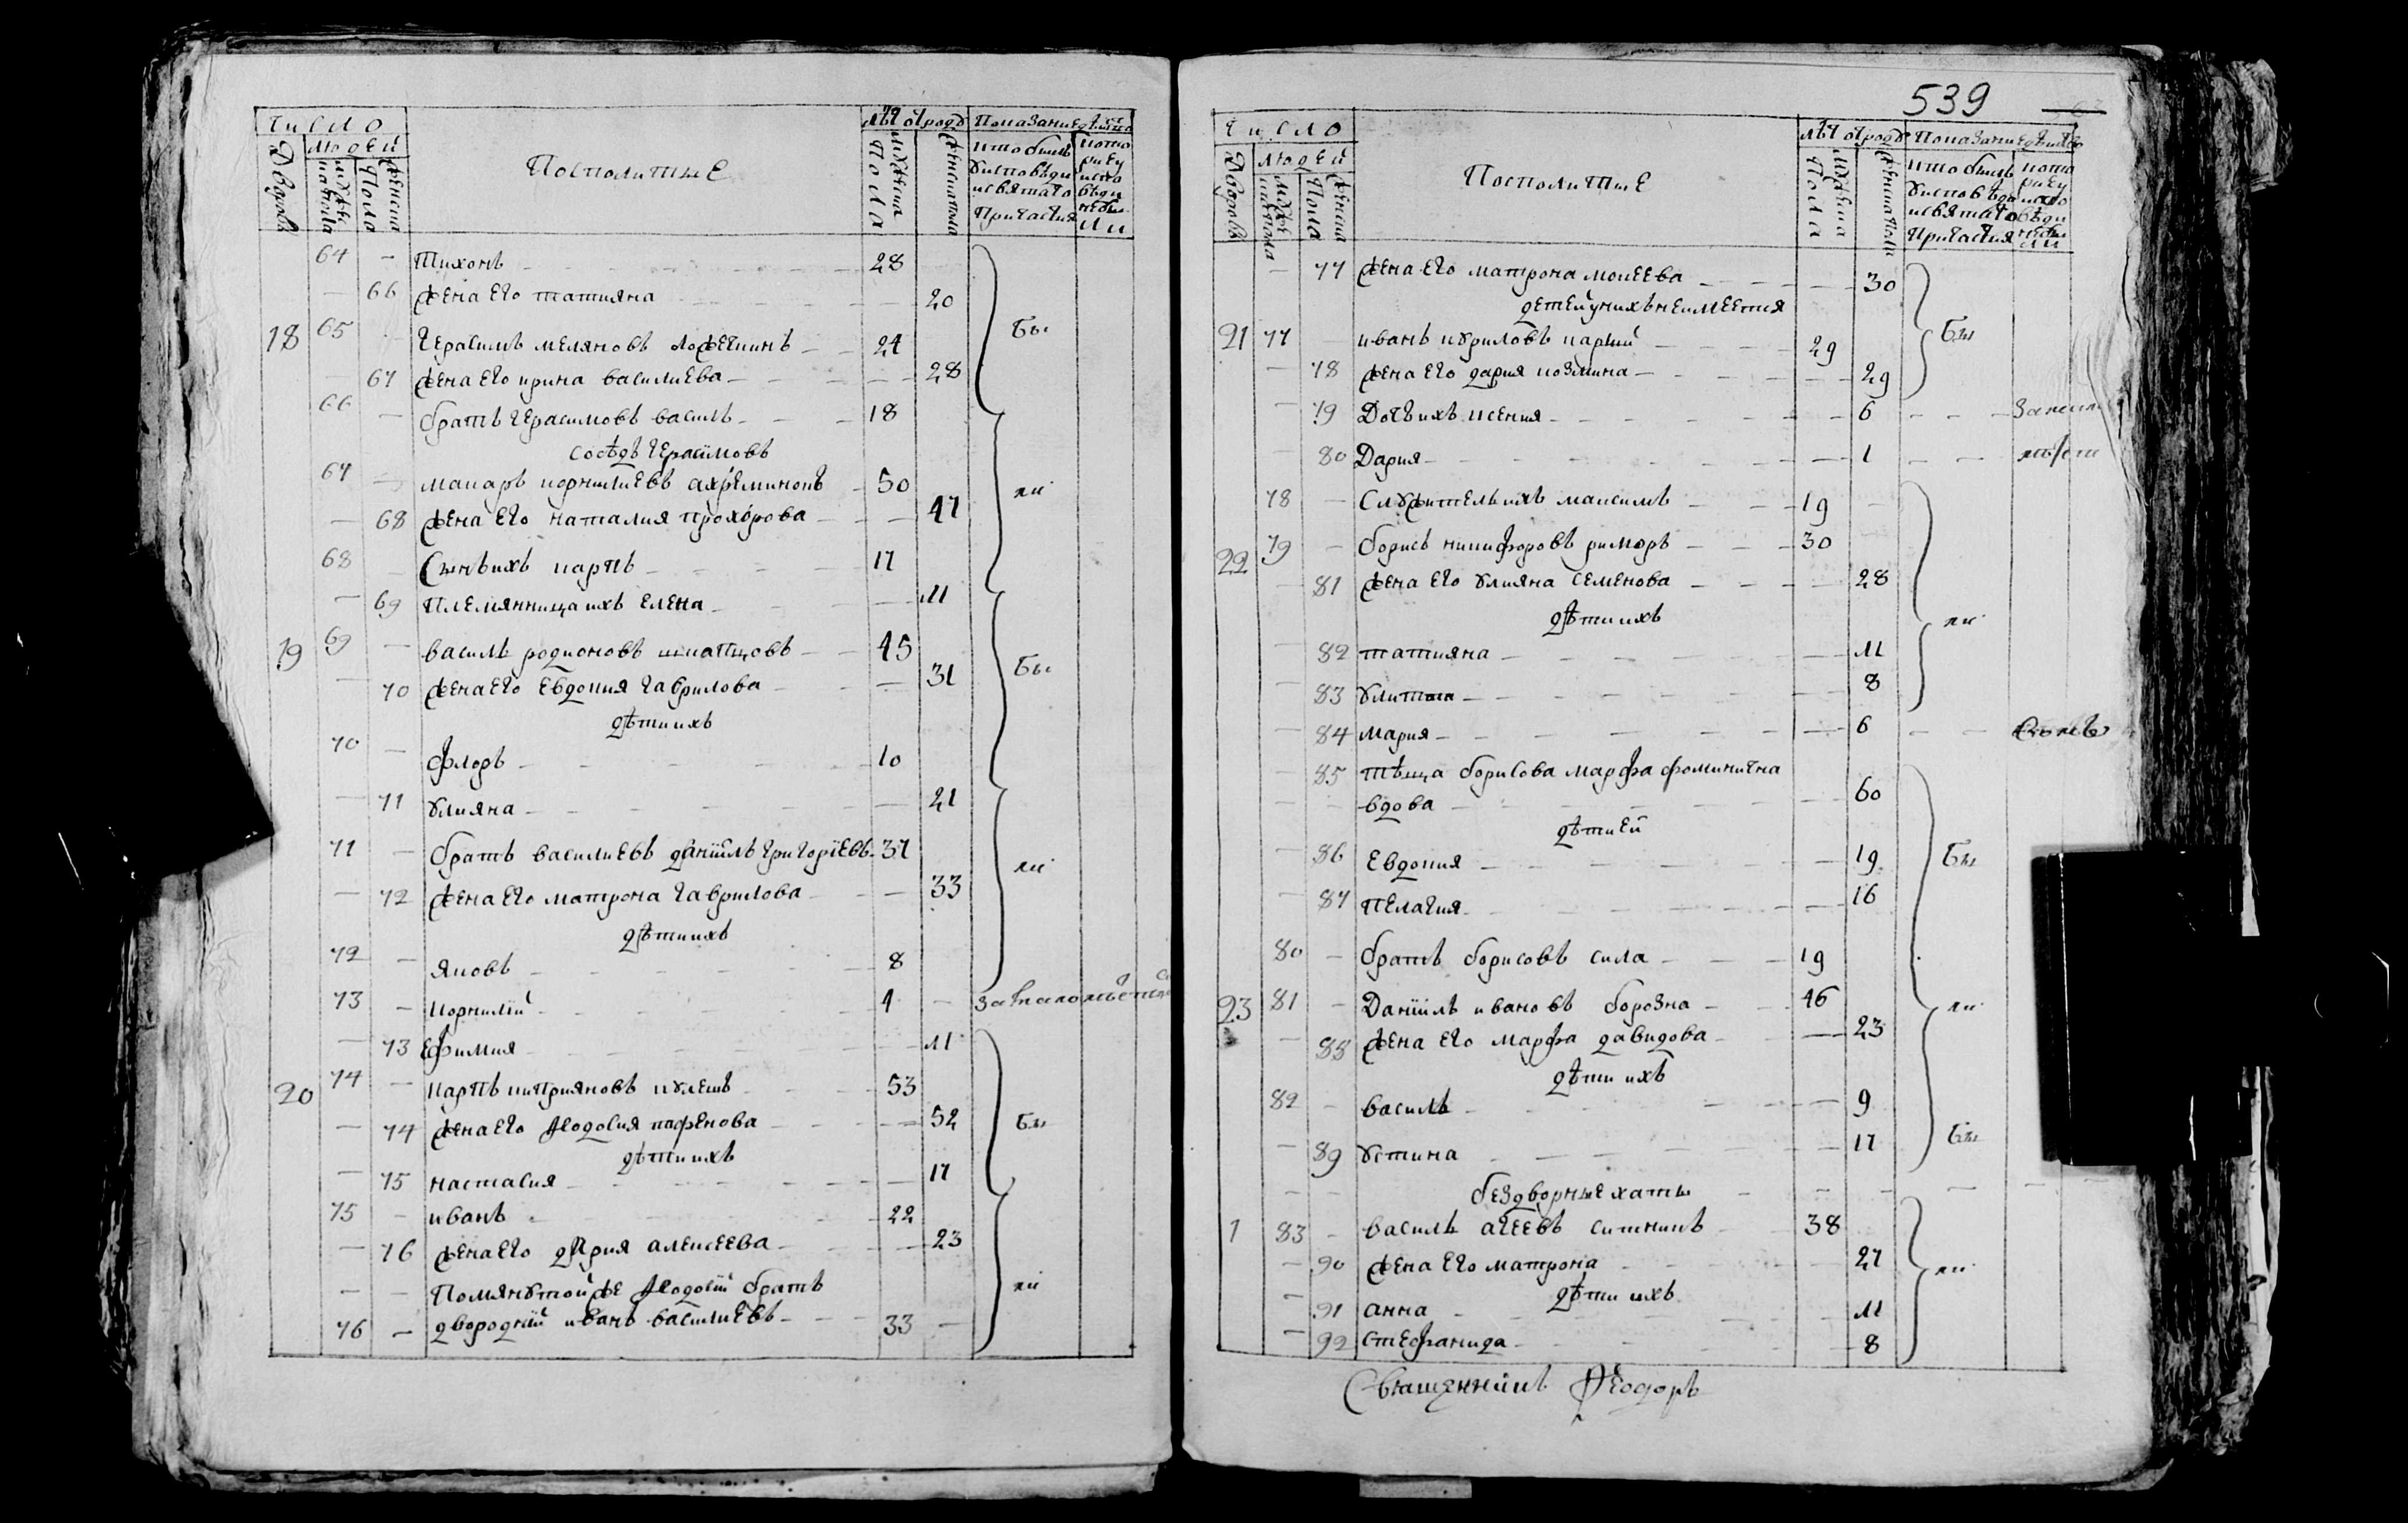 Число
Людей
Дворовъ
мужеска пола
женска пола
Посполитые
лѣтъ отроду
мужеска пола
женска пола
Показание действа
кто былъ у исповеди и святаго причастия
кто у исповеди не были
64 — Тихонъ — 28
— 66 жена его татияна — 20
18 65 герасимъ меляновъ — 24
— 67 жена его ирина василиева — 28
бы
66 — братъ герасимовъ василь — 18
сосѣдъ герасимовъ
67 — макаръ корнилиевъ — 50
— 68 жена его наталия прохорова — 47
ли
68 — Сынъ ихъ карпъ — 17
— 69 племянница ихъ елена — 11
19 69 — василь родионовъ — 45
— 70 жена его евдокия гаврилова — 31
бы
дѣти ихъ
70 — флоръ — 10
— 71 улияна — 21
71 — братъ василиевъ даниилъ григориевъ — 37
— 72 жена его матрона гаврилова — 33
ли
дѣти ихъ
72 — яковъ — 8
73 — корнилий — 1 —
— 73 ефимия — 11
20 74 — карпъ киприяновъ кулешъ — 53
— 74 жена его феодосия парфенова — 52
бы
дѣти ихъ
— 75 настасия — 17
75 — иванъ — 22
— 76 жена его дария алексеева — 23
— — Помянутой же феодосии братъ
76 — двородний иванъ василиевъ — 33 —
ли
539
Число
Людей
Дворовъ
мужеска пола
женска пола
Посполитые
лѣтъ отроду
мужеска пола
женска пола
Показание действа
кто былъ у исповеди и святаго причастия
кто у исповеди не были
— 77 жена его матрона моисеева — 30
детей у нихъ не имеется
21 77 иванъ куриловъ — 29
бы
— 78 жена его дария козмина — 29
— 79 Дочь ихъ ксения — 6 — —
— 80 Дария — 1 — —
78 — Служитель ихъ максимъ — 19 —
22 79 — борисъ никифоровъ — 30
— 81 жена его улияна семенова — 28
дѣти ихъ
ли
— 82 татияна — 11
— 83 улита — 8
— 84 мария — 6 — —
— 85 тѣща борисова марфа фоминична
— — вдова — 60
дѣти ей
— 86 Евдокия — 19
бы
— 87 пелагия — 16
80 — братъ борисовъ сила — 19
23 81 — Даниилъ ивановъ борозна — 46
ли
— 88 жена его марфа давидова — 23
дѣти ихъ
82 — василь — 9
— 89 устина — 17
бы
бездворные хаты
1 83 — василь агеевъ ситникъ — 38
— 90 жена его матрона — 27
ли
дѣти ихъ
— 91 анна — 11
— 92 стефанида — 8
Священникъ Феодоръ